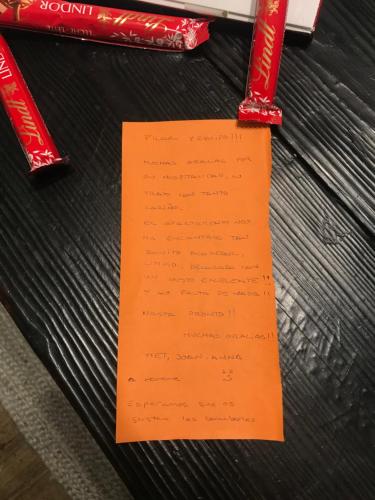 LINDOR
Lindt
LINDOR
Lindt
Lindt
PILAR Y EQUIPO!!!
MUCHAS GRACIAS POR
SU HOSPITALIDAD, SU
TRATO CON TANTO
CARIÑO.
EL APARTAMENTO NOS
HA ENCANTADO TAN
BONITO ACOGEDOR,
LIMPIO, DECORADO CON
UN GUSTO EXCELENTE!!
Y NO FALTA DE NADA!!
HASTA PRONTO!!
MUCHAS GRACIAS!!
MET, JOAN, ANNA
Esperamos que os
gusten los bombones